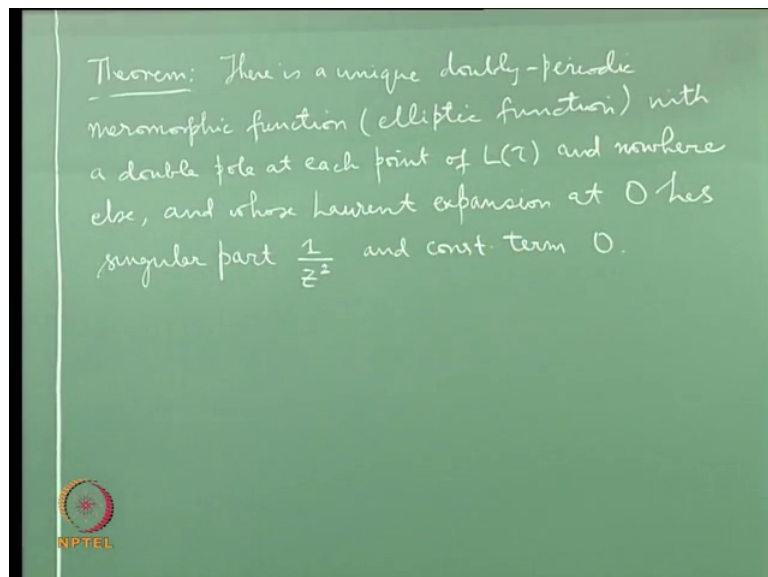 Theorem: There is a unique doubly-periodic
meromorphic function (elliptic function) with
a double pole at each point of L(τ) and nowhere
else, and whose Laurent expansion at 0 has
singular part 1/z² and const. term 0.
NPTEL